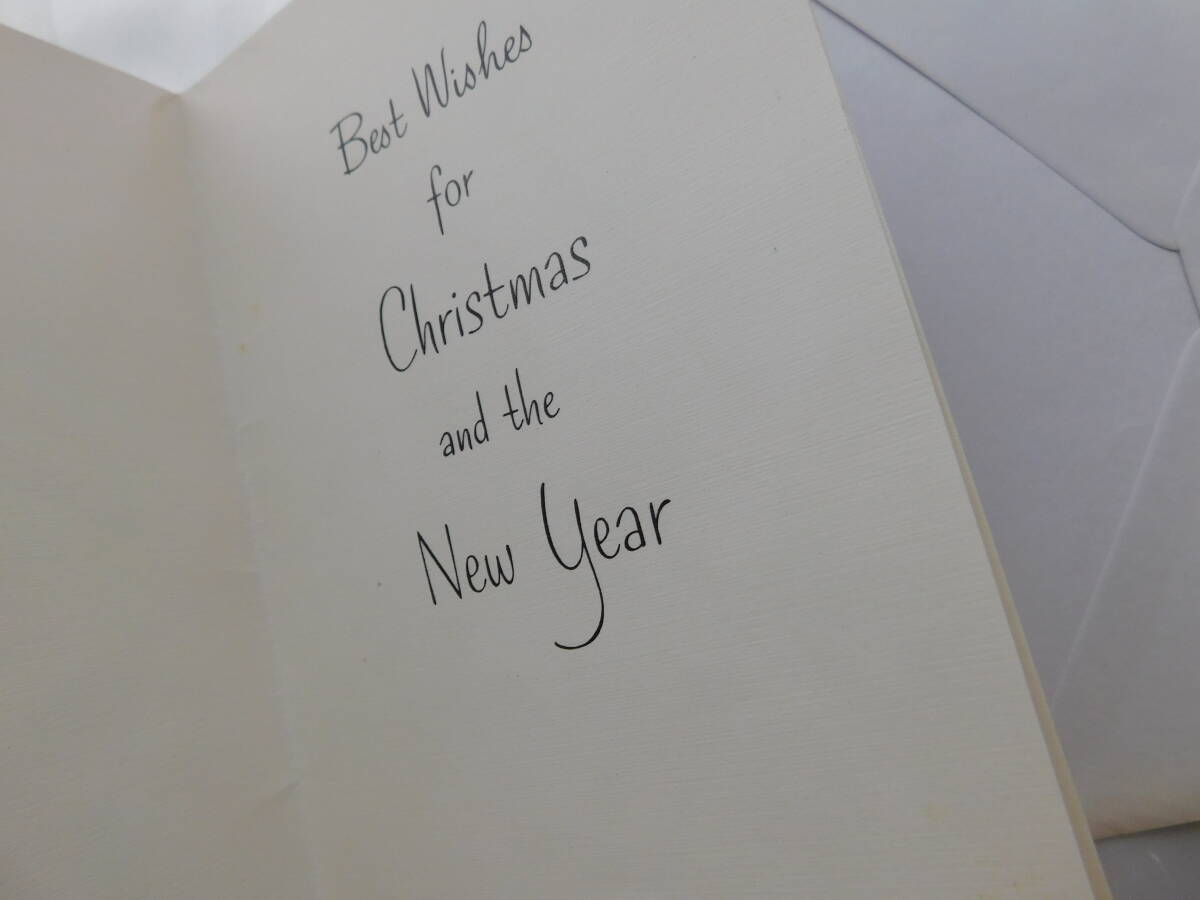 Best Wishes
for
Christmas
and the
New Year